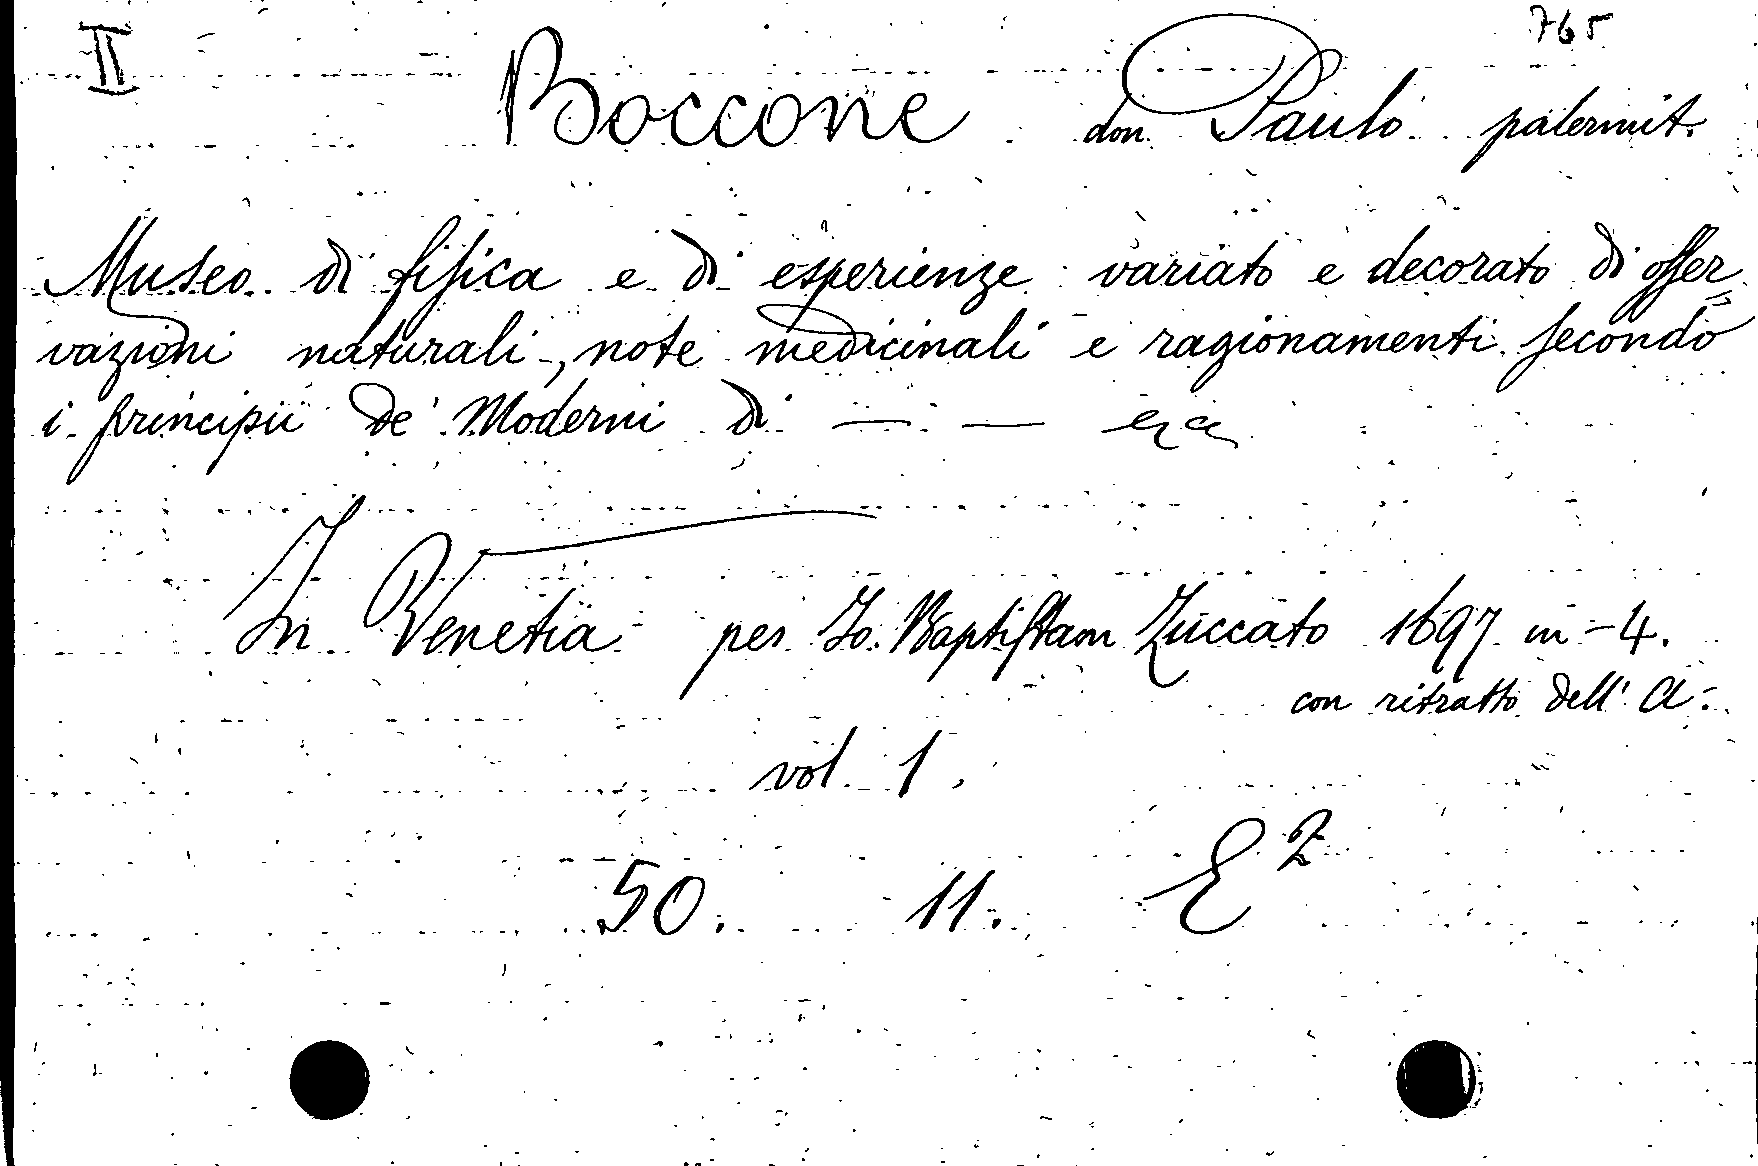 II
765
Boccone don Paulo palermit.
Museo di fiſica e di esperienze variato e decorato di oſſer=
vazioni naturali, note medicinali e ragionamenti ſecondo
i principii de' Moderni di — —
In Venetia per Jo. Baptiſtam Zuccato 1697 in-4.
con ritratto dell' A.
vol. 1.
50. 11. E²